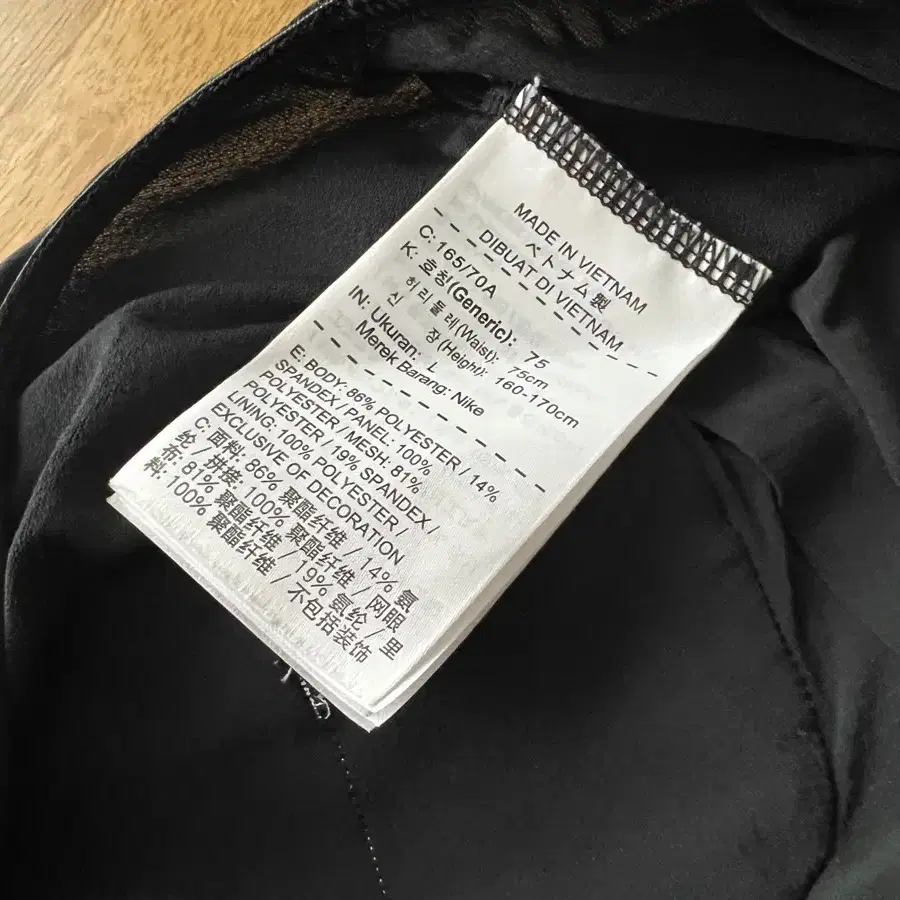 MADE IN VIETNAM
ベトナム製
DIBUAT DI VIETNAM
C: 165/70A
K: 호칭(Generic): 75
허리둘레(Waist): 75cm
신장(Height): 160-170cm
IN: Ukuran: L
Merek Barang: Nike
E: BODY: 86% POLYESTER / 14%
SPANDEX / PANEL: 100%
POLYESTER / MESH: 81%
POLYESTER / 19% SPANDEX /
LINING: 100% POLYESTER /
EXCLUSIVE OF DECORATION
C: 面料: 86% 聚酯纤维 / 14% 氨
纶 / 拼接: 100% 聚酯纤维 / 网眼
布: 81% 聚酯纤维 / 19% 氨纶 / 里
料: 100% 聚酯纤维 / 不包括装饰